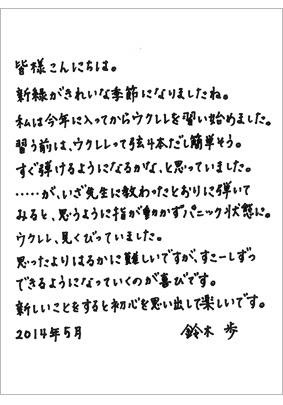 皆様こんにちは。
新緑がきれいな季節になりましたね。
私は今年に入ってからウクレレを習い始めました。
習う前は、ウクレレって弦4本だし簡単そう。
すぐ弾けるようになるかな、と思っていました。
……が、いざ先生に教わったとおりに弾いて
みると、思うように指が動かずパニック状態に。
ウクレレ、見くびっていました。
思ったよりはるかに難しいですが、すこーしずつ
できるようになっていくのが喜びです。
新しいことをすると初心を思い出して楽しいです。
2014年5月 鈴木 歩